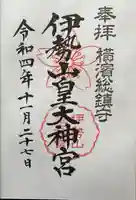 奉拝 横濱総鎮守
伊勢山皇大神宮
令和四年十一月二十七日